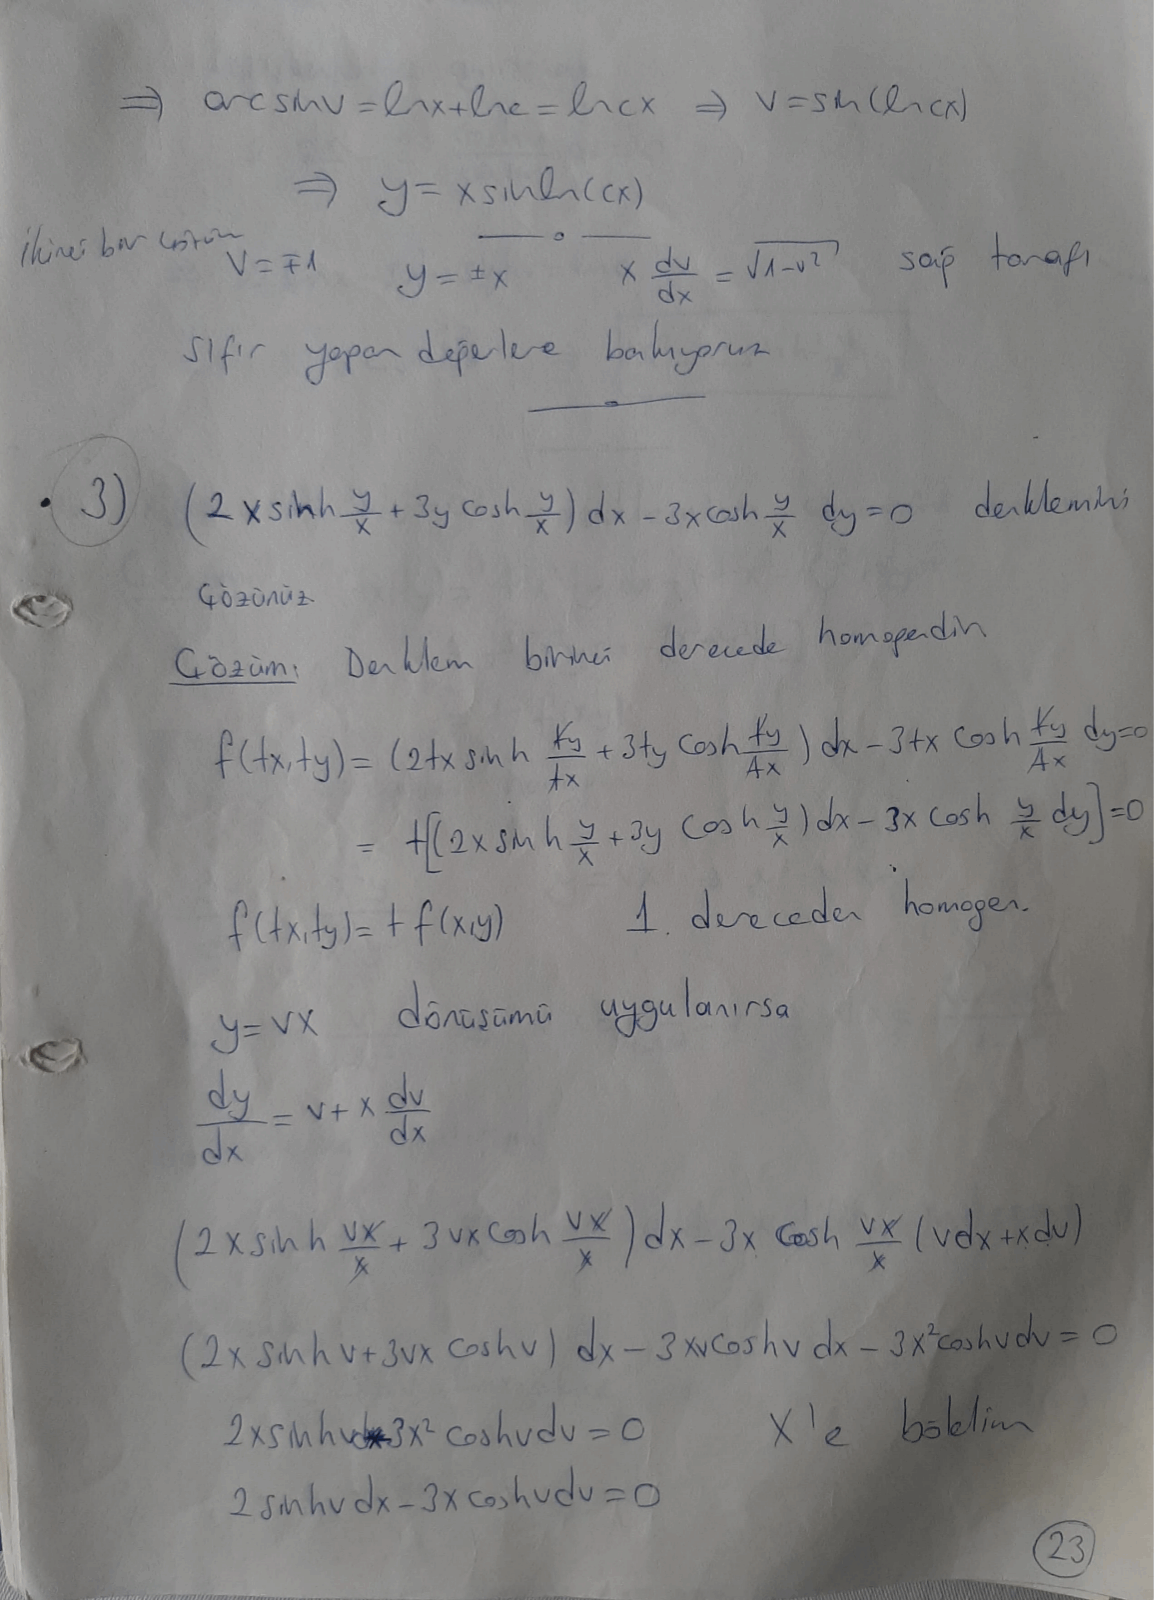 ⇒ arcsinv = lnx+lnc = lncx ⇒ v=sin(lncx)
⇒ y= xsinln(cx)
İkinci bir çözüm
v=∓1 y=±x x dv/dx = √(1-v²) sağ tarafı
sıfır yapan değerlere bakıyoruz
3) (2x sinh y/x + 3y cosh y/x) dx - 3x cosh y/x dy=0 denklemini
çözünüz
Çözüm: Denklem birinci derecede homogendir
f(tx,ty)= (2tx sinh ty/tx + 3ty cosh ty/tx) dx - 3tx cosh ty/tx dy=0
= t[(2x sinh y/x + 3y cosh y/x) dx - 3x cosh y/x dy]=0
f(tx,ty)= t f(x,y) 1. dereceden homogen.
y=vx dönüşümü uygulanırsa
dy/dx = v+ x dv/dx
(2x sinh vx/x + 3vx cosh vx/x) dx - 3x cosh vx/x (vdx+xdv)
(2x sinhv+3vx coshv) dx - 3xvcoshv dx - 3x²coshvdv = 0
2xsinhvdx-3x² coshvdv=0 x'e bölelim
2 sinhv dx - 3x coshvdv=0
23